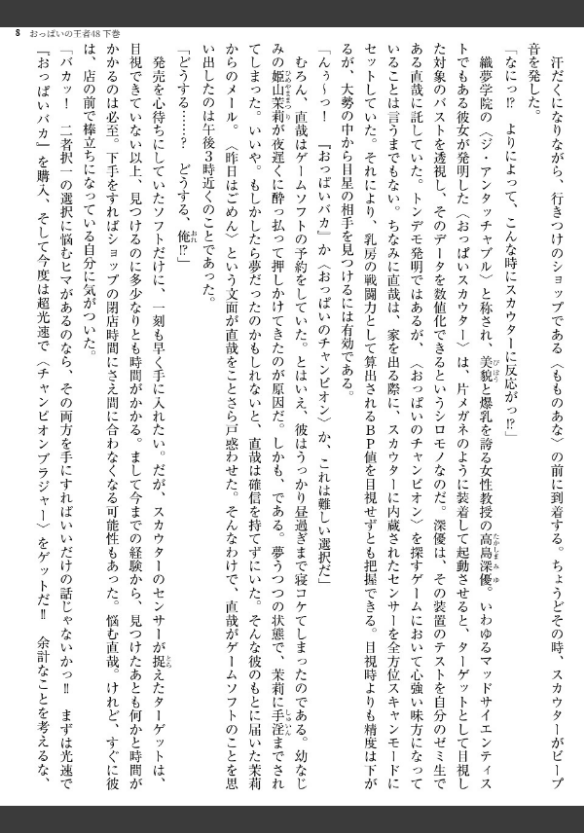 8 おっぱいの王者48 下巻
汗だくになりながら、行きつけのショップである〈もものあな〉の前に到着する。ちょうどその時、スカウターがビープ
音を発した。
「なにっ!? よりによって、こんな時にスカウターに反応がっ!?」
織夢学院の〈ジ・アンタッチャブル〉と称され、美貌と爆乳を誇る女性教授の高島深優。いわゆるマッドサイエンティス
トでもある彼女が発明した〈おっぱいスカウター〉は、片メガネのように装着して起動させると、ターゲットとして目視し
た対象のバストを透視し、そのデータを数値化できるというシロモノなのだ。深優は、その装置のテストを自分のゼミ生で
ある直哉に託していた。トンデモ発明ではあるが、〈おっぱいのチャンピオン〉を探すゲームにおいて心強い味方になって
いることは言うまでもない。ちなみに直哉は、家を出る際に、スカウターに内蔵されたセンサーを全方位スキャンモードに
セットしていた。それにより、乳房の戦闘力として算出されるBP値を目視せずとも把握できる。目視時よりも精度は下が
るが、大勢の中から目星の相手を見つけるには有効である。
「んぅ〜っ! 『おっぱいバカ』か〈おっぱいのチャンピオン〉か、これは難しい選択だ」
むろん、直哉はゲームソフトの予約をしていた。とはいえ、彼はうっかり昼過ぎまで寝コケてしまったのである。幼なじ
みの姫山茉莉が夜遅くに酔っ払って押しかけてきたのが原因だ。しかも、である。夢うつつの状態で、茉莉に手淫までされ
てしまった。いいや。もしかしたら夢だったのかもしれないと、直哉は確信を持てずにいた。そんな彼のもとに届いた茉莉
からのメール。〈昨日はごめん〉という文面が直哉をことさら戸惑わせた。そんなわけで、直哉がゲームソフトのことを思
い出したのは午後3時近くのことであった。
「どうする……? どうする、俺!?」
発売を心待ちにしていたソフトだけに、一刻も早く手に入れたい。だが、スカウターのセンサーが捉えたターゲットは、
目視できていない以上、見つけるのに多少なりとも時間がかかる。まして今までの経験から、見つけたあとも何かと時間が
かかるのは必至。下手をすればショップの閉店時間にさえ間に合わなくなる可能性もあった。悩む直哉。けれど、すぐに彼
は、店の前で棒立ちになっている自分に気がついた。
「バカッ! 二者択一の選択に悩むヒマがあるのなら、その両方を手にすればいいだけの話じゃないかっ!! まずは光速で
『おっぱいバカ』を購入、そして今度は超光速で〈チャンピオンブラジャー〉をゲットだ!! 余計なことを考えるな、